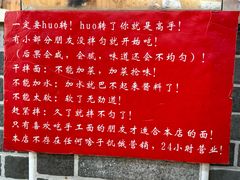 一定要huo转！huo转了你就是高手！
有小部分朋友没拌匀就开始吃！
（后果会咸，会腻，味道还会不均匀）！
干拌面：不能加菜，加菜抢味！
不能加水：加水就巴不起来酱料了！
不能太软：软了无劲道！
赶紧拌：久了就拌不匀了！
只有喜欢吃手工面的朋友才适合本店的面！
本店不存在任何啥子饥饿营销，24小时营业！